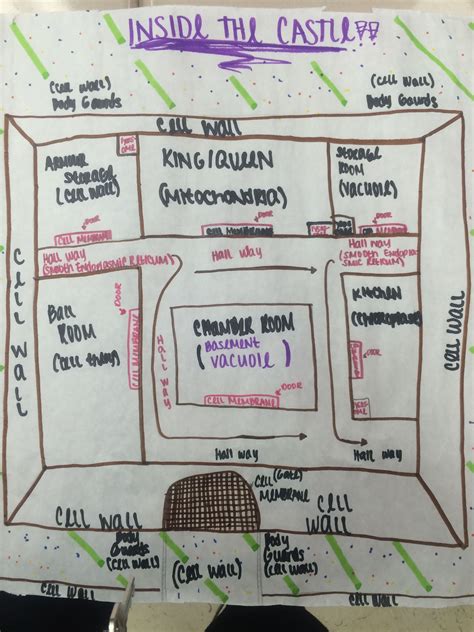 INSIDE THE CASTLE!!
(Cell Wall)
Body Guards
(Cell Wall)
Body Guards
Cell Wall
ARMOUR
STORAGE
(Cell Wall)
KING/QUEEN
(Mitochondria)
STORAGE
ROOM
(VACUOLE)
DOOR
Cell Membrane
DOOR
Cell Membrane
DOOR
Hall Way
(Smooth Endoplasmic Reticulum)
Hall Way
Hall Way
(Smooth Endoplasmic
Reticulum)
Cell Wall
Ball
Room
DOOR
Cell Membrane
Hall Way
CHAMBER ROOM
(BASEMENT
VACUOLE)
DOOR
Cell Membrane
KITCHEN
DOOR
Cell Wall
Hall Way
Hall Way
(Gate)
Cell
Membrane
Cell Wall
Cell
Wall
Body
Guards
(Cell Wall)
(Cell Wall)
Body
Guards
(Cell Wall)
Cell Wall
Cell Wall